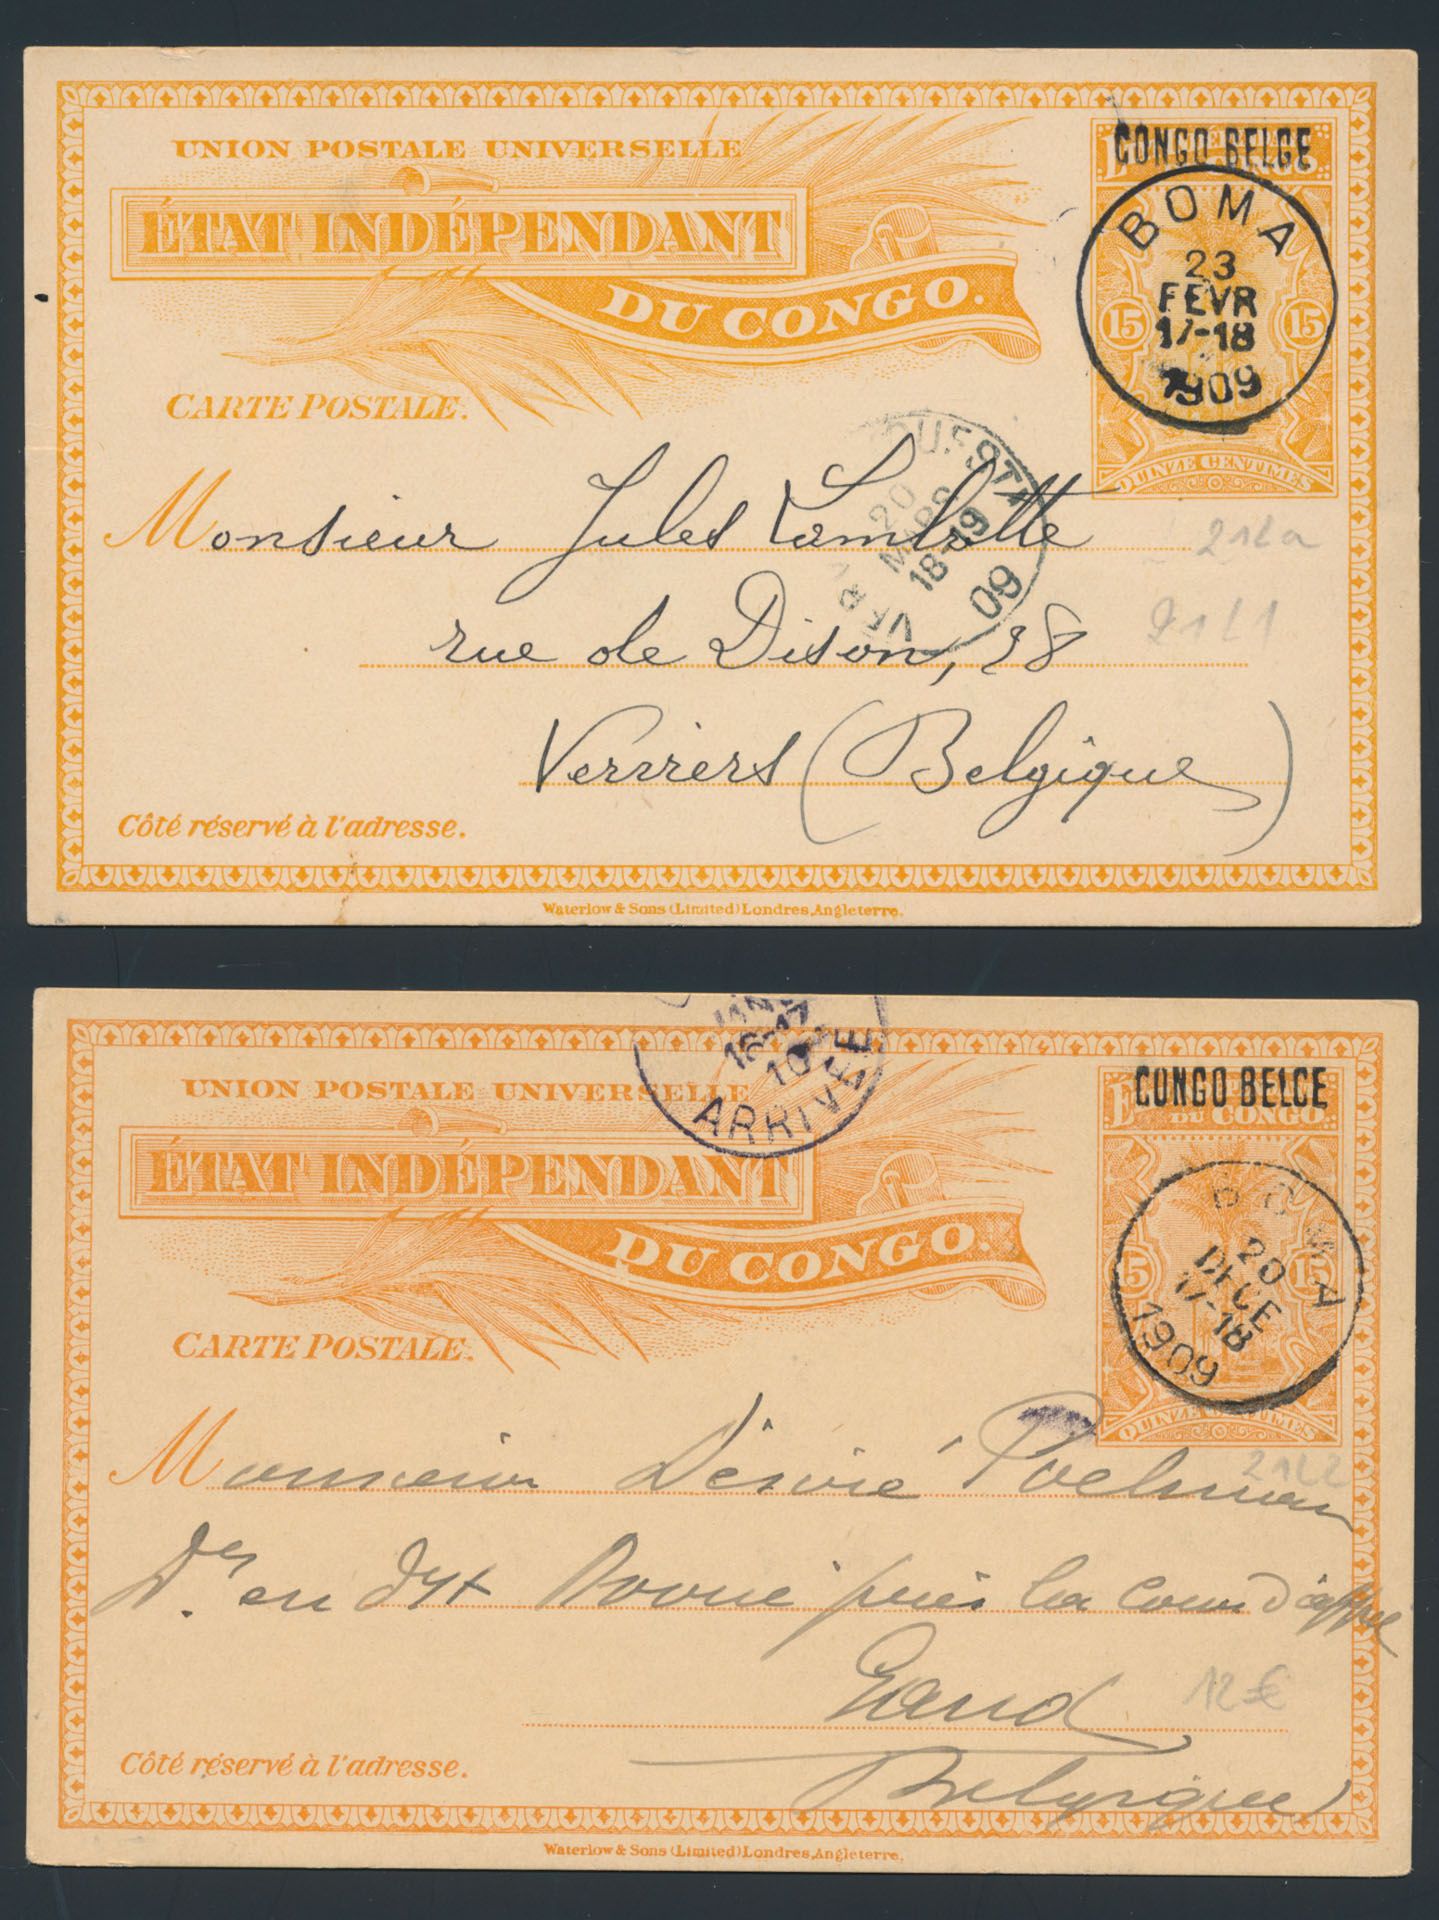 UNION POSTALE UNIVERSELLE
CONGO BELGE
ÉTAT INDÉPENDANT
DU CONGO.
BOMA
23
FEVR
17-18
1909
15 15
CARTE POSTALE.
QUINZE CENTIMES
20
MARS
18-19
09
Monsieur Jules Lambrette
212a
rue de Dison, 28
Verviers (Belgique)
Côté réservé à l'adresse.
Waterlow & Sons (Limited) Londres, Angleterre.
16-17
10
ARRIVÉE
UNION POSTALE UNIVERSELLE
CONGO BELGE
DU CONGO
ÉTAT INDÉPENDANT
DU CONGO.
BOMA
20
DECE
17-18
1909
15 15
CARTE POSTALE.
QUINZE CENTIMES
Monsieur Désiré Poelman
Dr en dr près la Cour d'appel
Gand
12 €
Belgique
Côté réservé à l'adresse.
Waterlow & Sons (Limited) Londres, Angleterre.